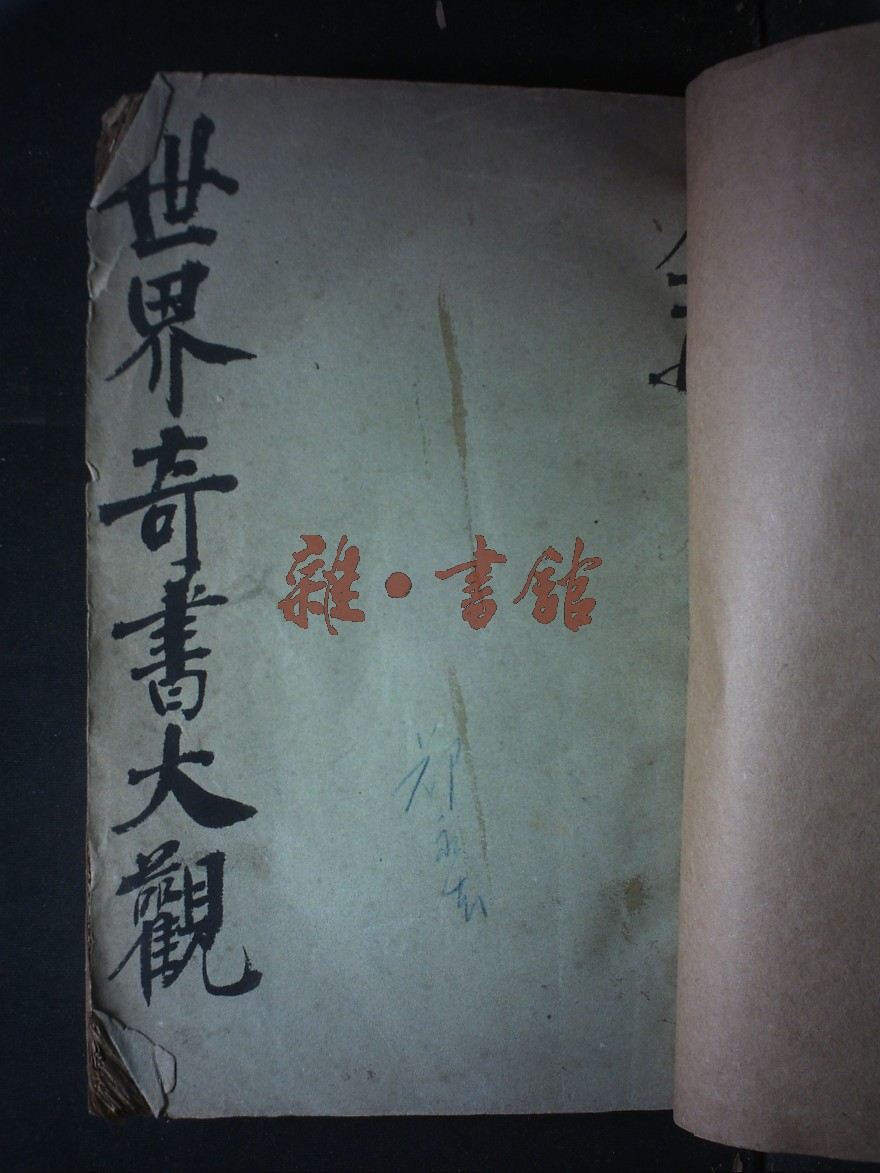 世界奇書大觀
雜•書館